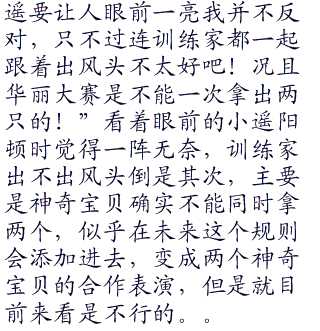 遥要让人眼前一亮我并不反
对，只不过连训练家都一起
跟着出风头不太好吧！况且
华丽大赛是不能一次拿出两
只的！”看着眼前的小遥阳
顿时觉得一阵无奈，训练家
出不出风头倒是其次，主要
是神奇宝贝确实不能同时拿
两个，似乎在未来这个规则
会添加进去，变成两个神奇
宝贝的合作表演，但是就目
前来看是不行的。。